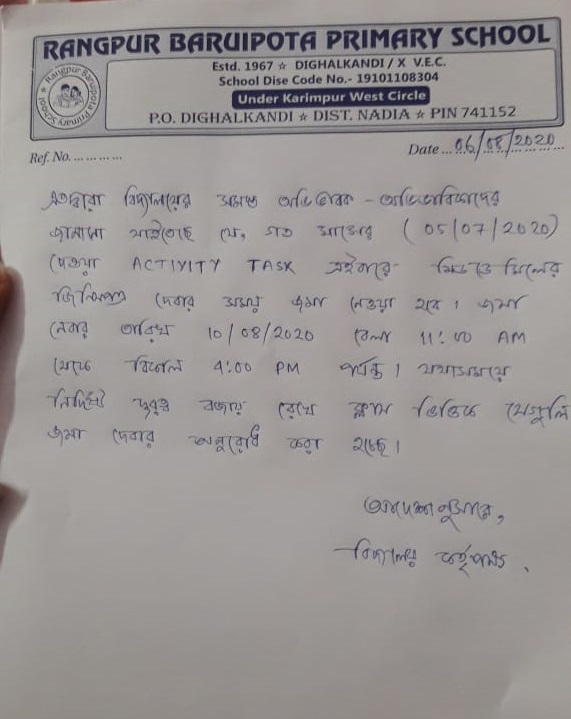 RANGPUR BARUIPOTA PRIMARY SCHOOL
Estd. 1967 ☆ DIGHALKANDI / X V.E.C.
School Dise Code No.- 19101108304
Under Karimpur West Circle
P.O. DIGHALKANDI ☆ DIST. NADIA ☆ PIN 741152
Rangpur Baruipota Primary School
Ref. No. ............ Date ... 06/08/2020
এতদ্বারা বিদ্যালয়ের সমস্ত অভিভাবক - অভিভাবিকাদের
জানানো যাইতেছে যে, গত মাসের (05/07/2020)
দেওয়া ACTIVITY TASK এইবারে মিড ডে মিলের
জিনিসপত্র দেবার সময় জমা নেওয়া হবে। জমা
নেবার তারিখ 10/08/2020 বেলা 11:00 AM
থেকে বিকেল 4:00 PM পর্যন্ত। যথাসময়ে
নির্দিষ্ট দূরত্ব বজায় রেখে ক্লাস ভিত্তিক সেগুলি
জমা দেবার অনুরোধ করা হচ্ছে।
আদেশানুসারে,
বিদ্যালয় কর্তৃপক্ষ.